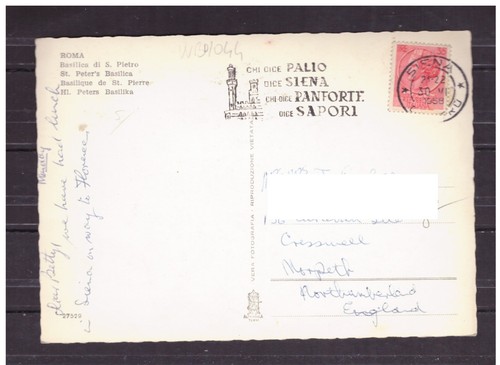 ROMA
Basilica di S. Pietro
St. Peter's Basilica
Basilique de St. Pierre
Hl. Peters Basilika
CHI DICE PALIO
DICE SIENA
CHI DICE PANFORTE
DICE SAPORI
SIENA
1968
VERA FOTOGRAFIA - RIPRODUZIONE VIETATA
Monday
Dear Betty, we have had lunch
in Siena on way to Florence
Cresswell
Morpeth
Northumberland
England
27320